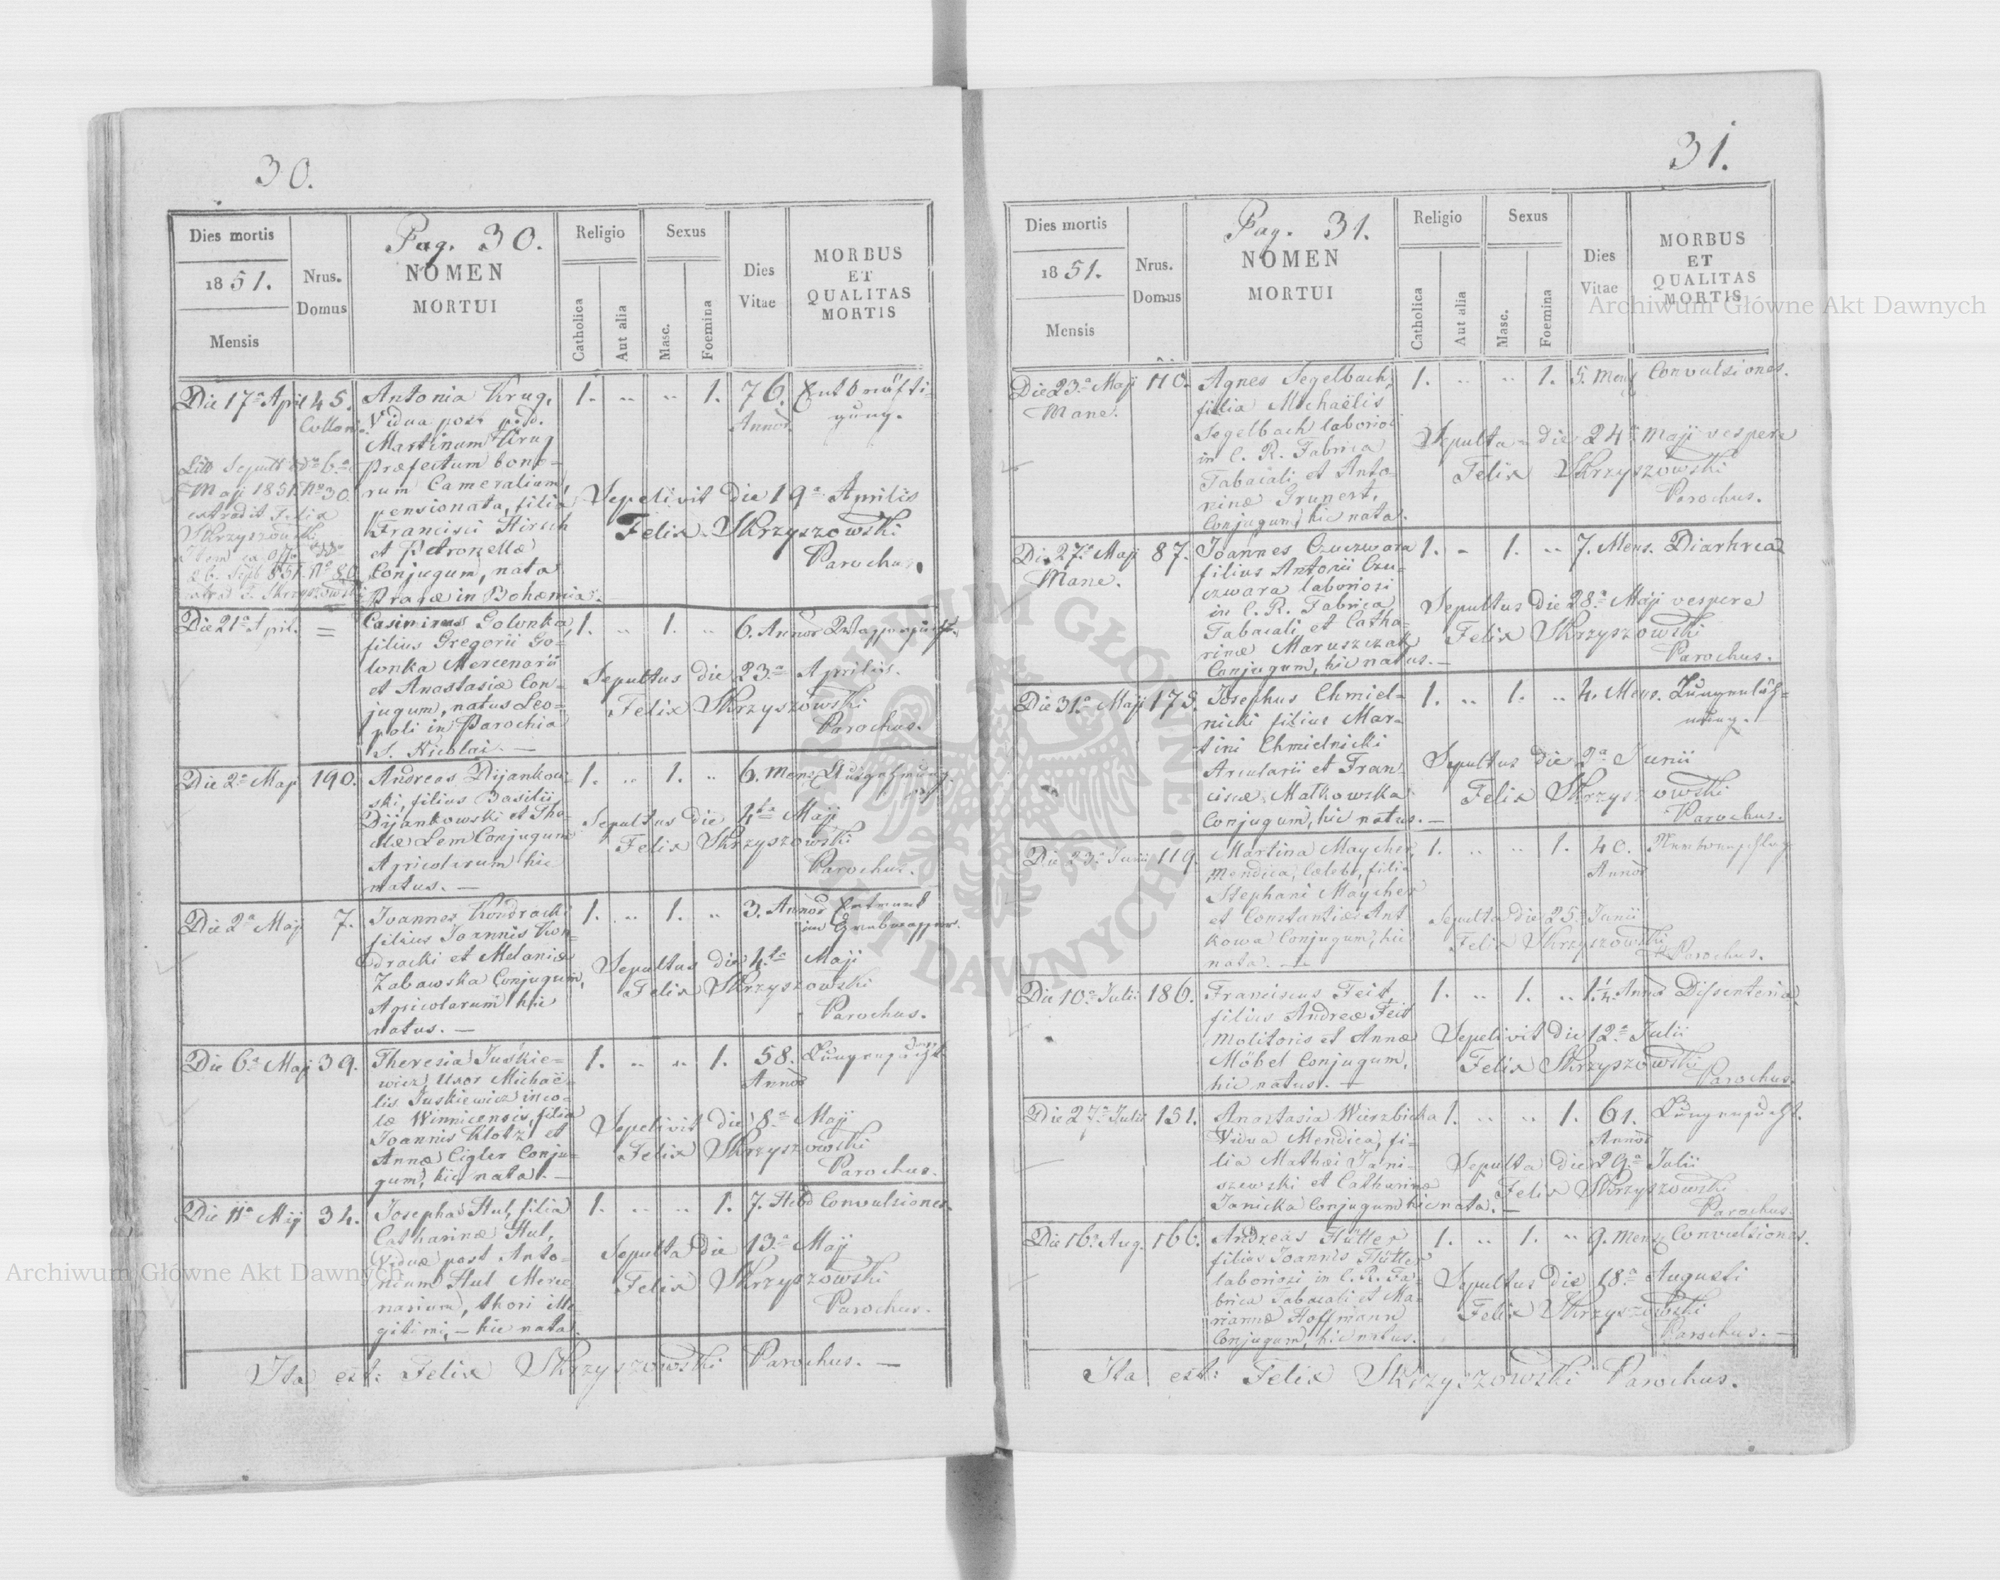 30.
Pag. 30.
Dies mortis
1851.
Mensis
Nrus.
Domus
NOMEN
MORTUI
Religio
Catholica
Aut alia
Sexus
Masc.
Foemina
Dies
Vitae
MORBUS
ET
QUALITAS
MORTIS
Die 17a April 45.
Antonia Krug,
Vidua post p. d.
Martinum Krug
Præfectum bono-
rum Cameralium,
pensionata, filia
Francisci Hirsch
et Petronellæ
Conjugum, nata
Pragæ in Bohœmia.
1. .. .. 1. 76.
Annor.
Entkräfti-
gung.
Maji 1851. No 30.
extradit Felix
Skrzyszowski
Sepelivit die 19a Aprilis
Felix Skrzyszowski
Parochus.
Die 21a April. =
Casimirus Golonka
filius Gregorii Go-
lonka Mercenarii
et Anastasiæ Con-
jugum, natus Leo-
poli in Parochia
S. Nicolai. —
1. .. 1. .. 6. Annor
Sepultus die 23a Aprilis.
Felix Skrzyszowski
Parochus.
Die 2a Maji 190.
Andreas Dijankow-
ski, filius Basilii
Dijankowski et The-
clæ Lem Conjugum
Agricolarum hic
natus. —
1. .. 1. .. 6. Mens.
Sepultus die 4ta Maji
Felix Skrzyszowski
Parochus.
Die 2a Maij 7.
Joannes Kondracki
filius Joannis Kon-
dracki et Melaniæ
Zabawska Conjugum,
Agricolarum hic
natus. —
1. .. 1. .. 3. Annor
Sepultus die 4ta Maji
Felix Skrzyszowski
Parochus.
Die 6a Maij 39.
Theresia Juskie-
wicz, Uxor Michaë-
lis Juskiewicz inco-
læ Winnicensis, filia
Joannis Klotz et
Annæ Cigler Conju-
gum, hic nata. —
1. .. .. 1. 58.
Annor
Lungensucht.
Sepelivit die 8a Maji
Felix Skrzyszowski
Parochus.
Die 11a Maij 34.
Josepha Hul, filia
Catharinæ Hul,
Viduæ post Anto-
nium Hul Merce-
narium, thori ille-
gitimi, — hic nata.
1. .. .. 1. 7. Hebd Convulsiones.
Sepulta die 13a Maij
Felix Skrzyszowski
Parochus.
Ita est: Felix Skrzyszowski Parochus. —
31.
Pag. 31.
Dies mortis
1851.
Mensis
Nrus.
Domus
NOMEN
MORTUI
Religio
Catholica
Aut alia
Sexus
Masc.
Foemina
Dies
Vitae
MORBUS
ET
QUALITAS
MORTIS
Die 23a Maji 110.
Mane.
Agnes Segelbach,
filia Michaëlis
Segelbach laboriosi
in C. R. Fabrica
Tabacali, et Anto-
ninæ Grunert,
Conjugum, hic nata.
1. .. .. 1. 5. Mens Convulsiones.
Sepulta die 24a Maji vespere
Felix Skrzyszowski
Parochus.
Die 27a Maji 87.
Mane.
Joannes Czuczwara
filius Antonii Czu-
czwara laboriosi
in C. R. Fabrica
Tabacali, et Catha-
rinæ Maruszczak
Conjugum, hic natus. —
1. - 1. .. 7. Mens. Diarhrea
Sepultus Die 28a Maji vespere
Felix Skrzyszowski
Parochus.
Die 31a Maji 175.
Josephus Chmiel-
nicki filius Mar-
tini Chmielnicki
Arcularii et Fran-
ciscæ Malkowska
Conjugum, hic natus. —
1. .. 1. .. 4. Mens. Lungenläh-
mung.
Sepultus die 2a Junii
Felix Skrzyszowski
Parochus.
Die 23a Junii 119.
Martina Maycher,
Mendica, Cælebs, filia
Stephani Maycher
et Constantiæ Ant
kowa Conjugum, hic
nata. —
1. .. .. 1. 40.
Annor
Sepulta die 25a Junii
Felix Skrzyszowski
Parochus.
Die 10a Julii 186.
Franciscus Feit,
filius Andreæ Feit
Molitoris et Annæ
Möbel Conjugum,
hic natus. —
1. .. 1. .. 1¼. Annor Dissenteria
Sepelivit die 12a Julii
Felix Skrzyszowski
Parochus.
Die 27a Julii 151.
Anastasia Wierzbicka
Vidua Mendica, fi-
lia Mathæi Jani-
szewski et Catharinæ
Janicka Conjugum hic nata. —
1. .. .. 1. 61.
Annor
Lungensucht.
Sepulta die 29a Julii
Felix Skrzyszowski
Parochus.
Die 16a Aug. 166.
Andreas Hütter
filius Joannis Hütter
laboriosi in C. R. Fa-
brica Tabacali et Ma-
riannæ Hoffmann
Conjugum, hic natus.
1. .. 1. .. 9. Mens. Convulsiones.
Sepultus die 18a Augusti
Felix Skrzyszowski
Parochus. —
Ita est: Felix Skrzyszowski Parochus.
Archiwum Główne Akt Dawnych
Archiwum Główne Akt Dawnych
ARCHIWUM GŁÓWNE AKT DAWNYCH